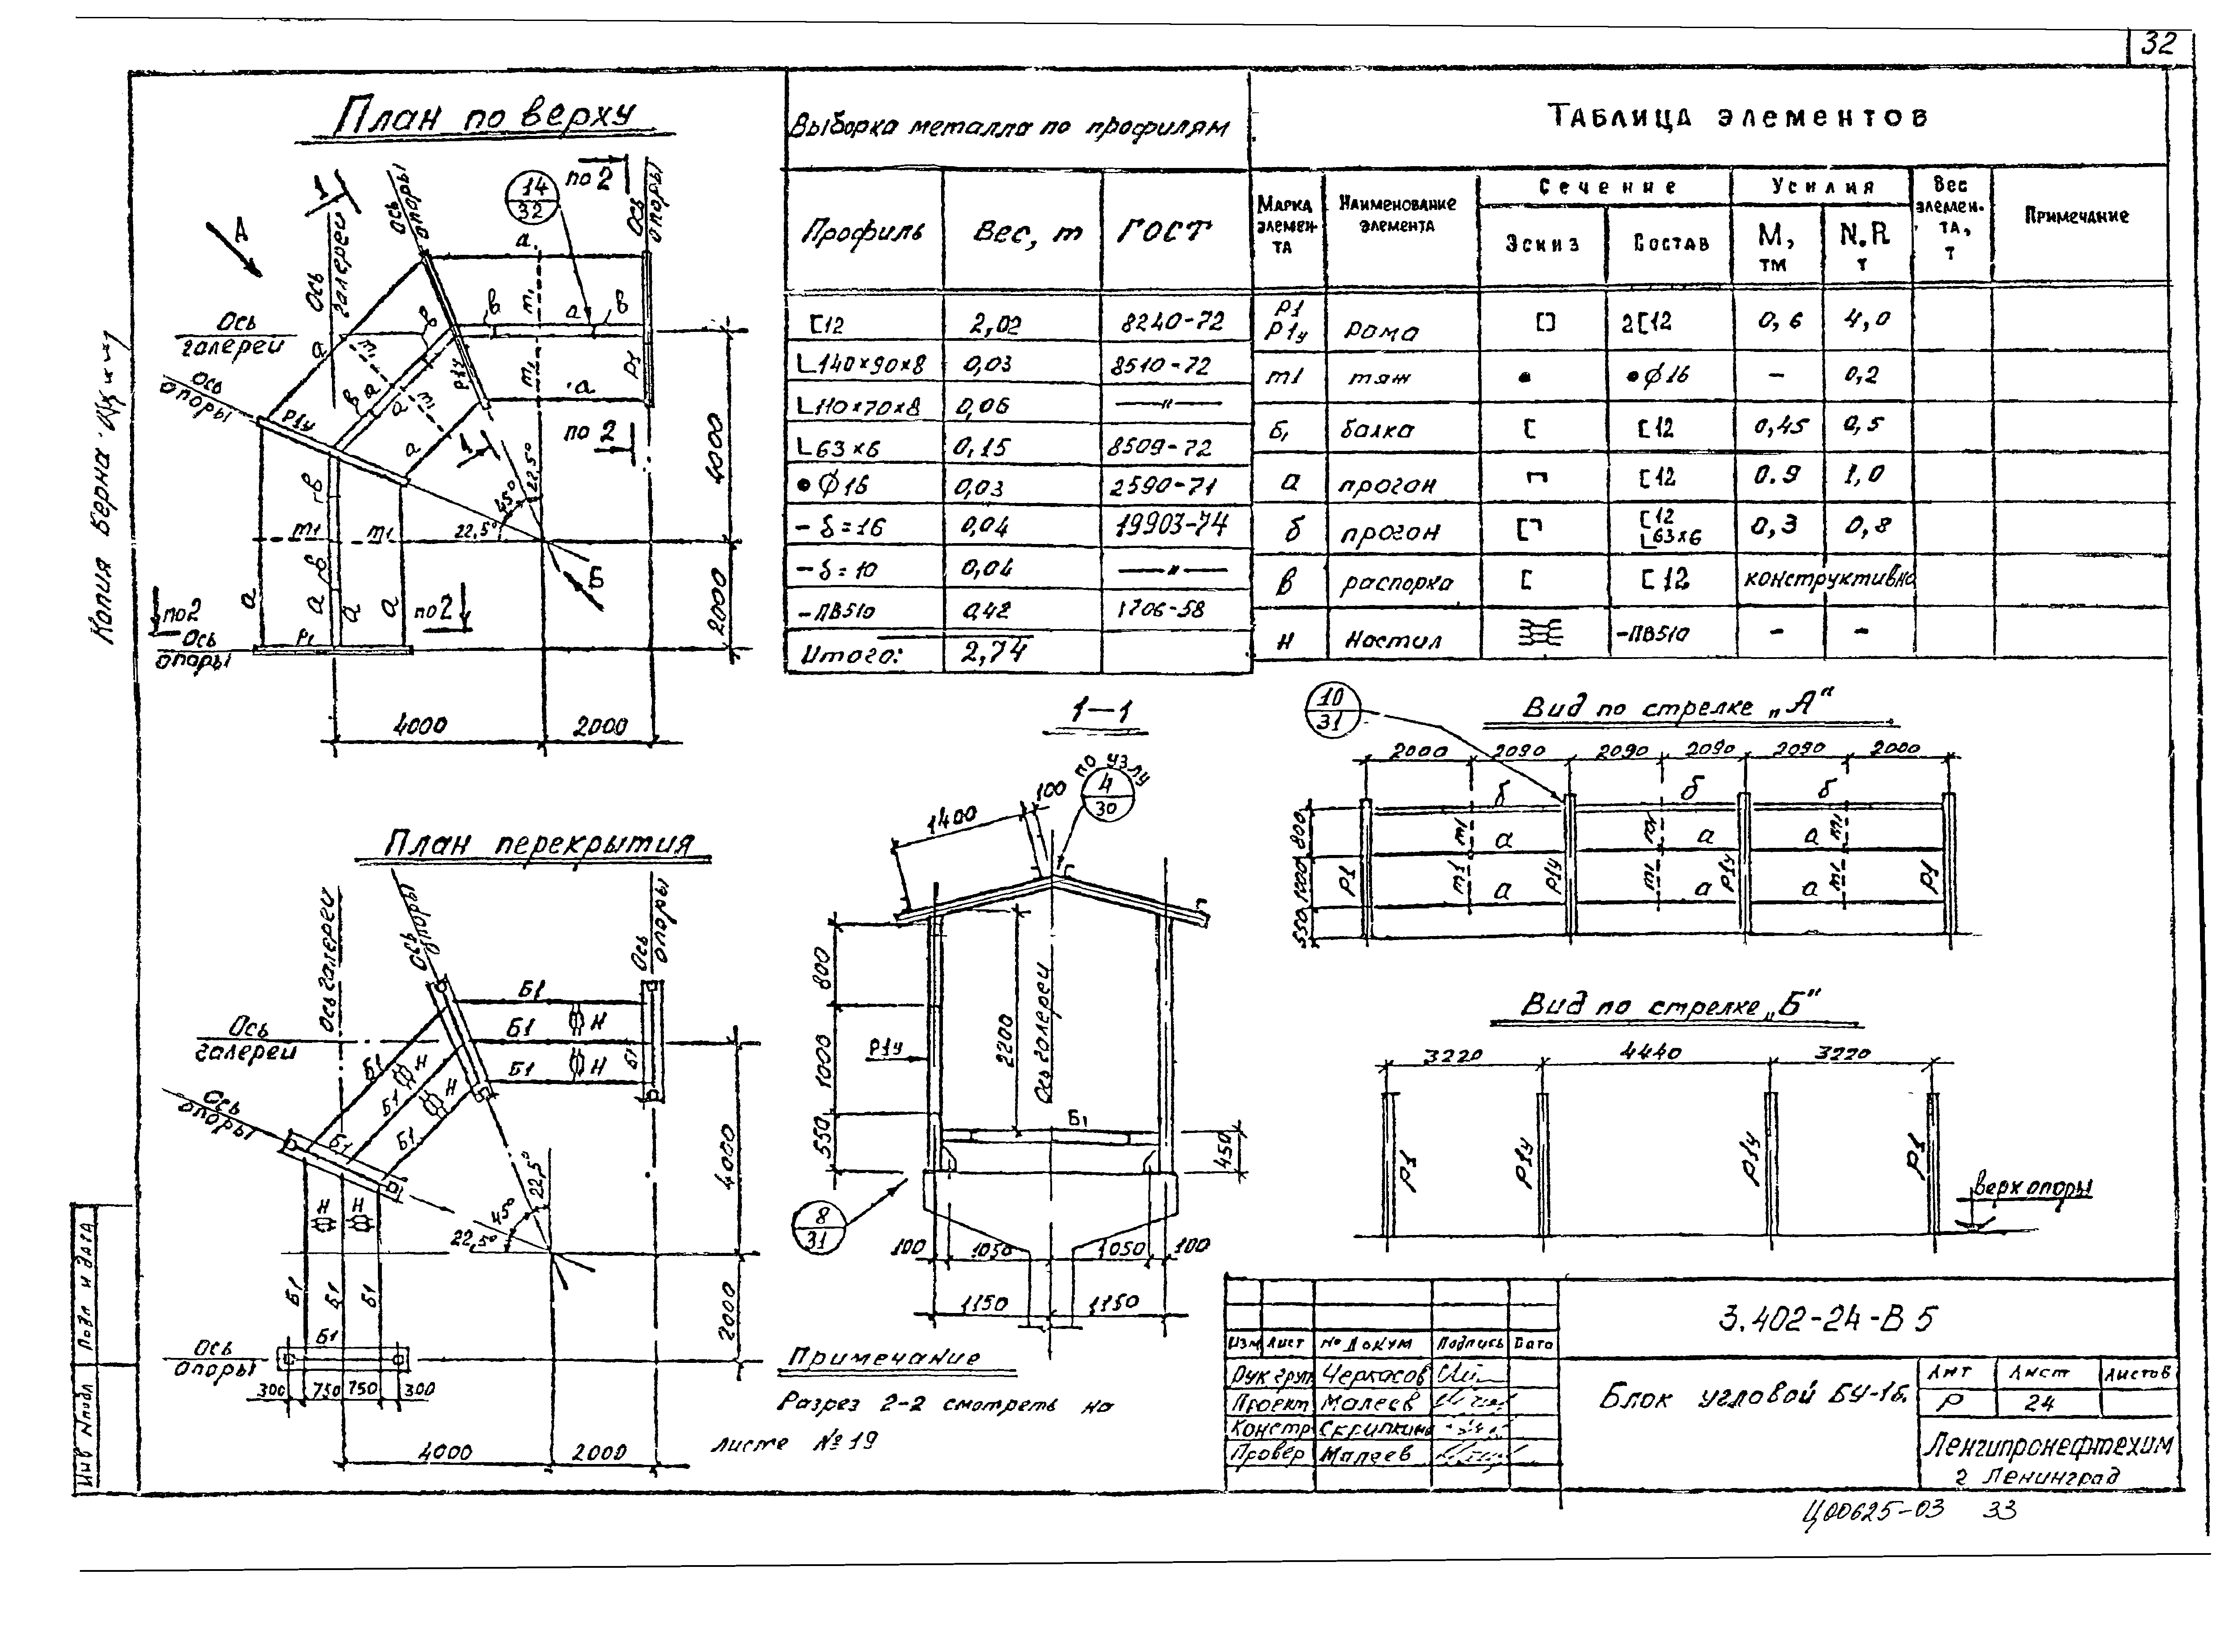 32
План по верху
А
1
по 2
14
32
Ось опоры
Ось опоры
Ось галереи
Ось
галереи
Ось
опоры
а
в
а
в
m1
m1
Р1
Р1у
в
а
m1
в
а
а
m1
а
а
Р1у
1
по 2
4000
2000
22,5°
45°
22,5°
Б
в
m1
m1
в
а
а
а
а
по 2
по 2
Ось
опоры
Р1
4000
2000
Выборка металла по профилям
Профиль Вес, т ГОСТ
[12 2,02 8240-72
L140×90×8 0,03 8510-72
L110×70×8 0,06 —"—
L63×6 0,15 8509-72
• Ø16 0,03 2590-71
- δ=16 0,04 19903-74
- δ=10 0,04 —"—
-ПВ510 0,42 1706-58
Итого: 2,74
Таблица элементов
Марка элемента Наименование элемента Сечение Усилия Вес элемента, т Примечание
Эскиз Состав М, тм N.R т
Р1 Р1у рама [] 2[12 0,6 4,0
m1 тяж • •Ø16 - 0,2
Б1 балка [ [12 0,45 0,5
а прогон [12 0.9 1,0
б прогон [12 L63×6 0,3 0,8
в распорка [ [12 конструктивно
н настил -ПВ510 - -
1—1
по узлу
4
30
100
1400
800
1000
550
Р1у
2200
Ось галереи
Б1
450
8
31
100 1050 1050 100
1150 1150
Вид по стрелке „А"
10
31
2000 2090 2090 2090 2090 2000
800
1000
550
б б б
а а а
а а а
m1 m1 m1
m1 m1 m1
Р1 Р1у Р1у Р1
Вид по стрелке „Б"
3220 4440 3220
Р1 Р1у Р1у Р1
верх опоры
План перекрытия
Ось галереи
Ось опоры
Ось опоры
Ось
галереи
Ось
опоры
Б1
Б1 н
Б1 н
Б1
Б1
н
Б1
н
Б1
Б1
н н
22,5°
45°
22,5°
4000
2000
Б1 Б1 Б1
Б1
Ось
опоры
300 750 750 300
4000 2000
Примечание
Разрез 2-2 смотреть на
листе №19
3.402-24-В 5
Изм Лист № Докум Подпись Дата
Рук груп Черкасов
Проект Малеев
Констр Скрипкина
Провер Малеев
Блок угловой БУ-1б.
Лит Лист Листов
Р 24
Ленгипронефтехим
г Ленинград
Ц00625-03 33
Копия верна
Подп и дата
Инв №подл